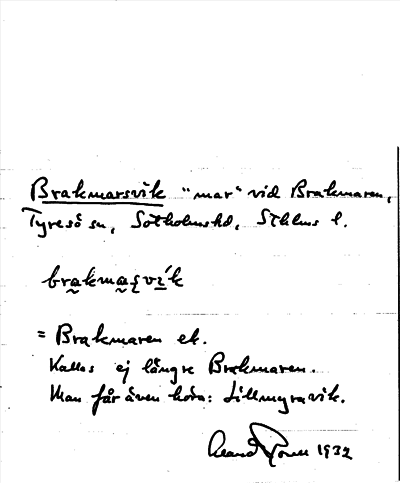 Brakmarsvik "mar" vid Brakmaren,
Tyresö sn, Sotholmshd, Sthlms l.
brakmaʂvík
= Brakmaren ek.
Kallas ej längre Brakmaren.
Man får även höra: Lillmyravik.
1932